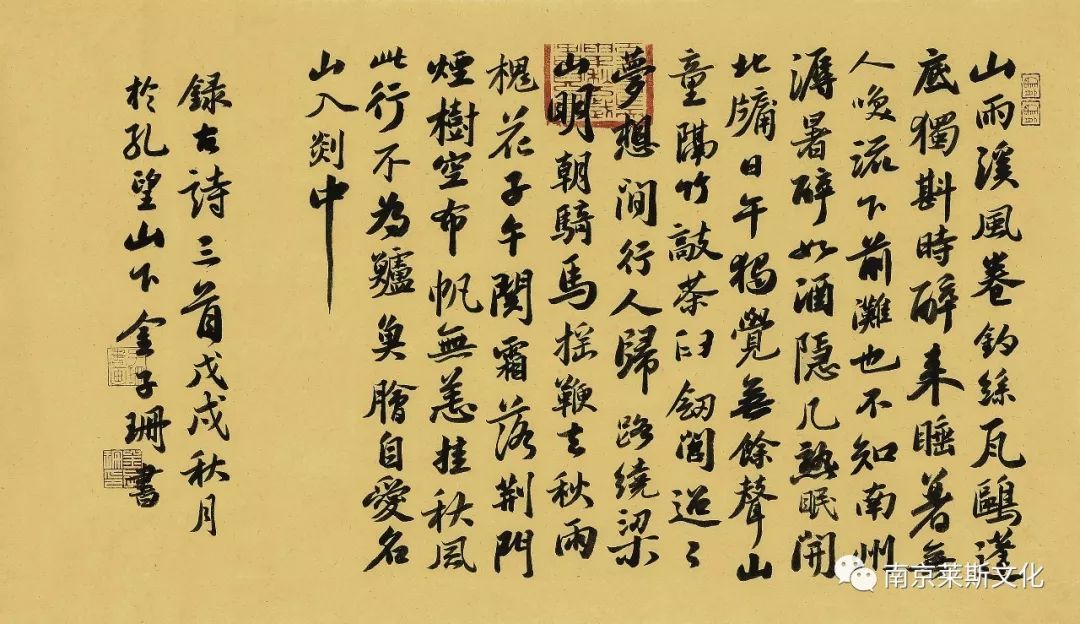 山雨溪風卷釣絲瓦甌篷
底獨斟時醉來睡著無
人喚流下前灘也不知南州
溽暑醉如酒隐几熟眠開
北牖日午獨覺無餘聲山
童隔竹敲茶臼劒閣迢々
夢想間行人歸路繞梁
山明朝騎馬摇鞭去秋雨
槐花子午関霜落荆門
煙樹空布帆無恙挂秋風
此行不為鱸魚膾自愛名
山入剡中
録古詩三首戊戌秋月
於孔望山下金子珊書
南京莱斯文化